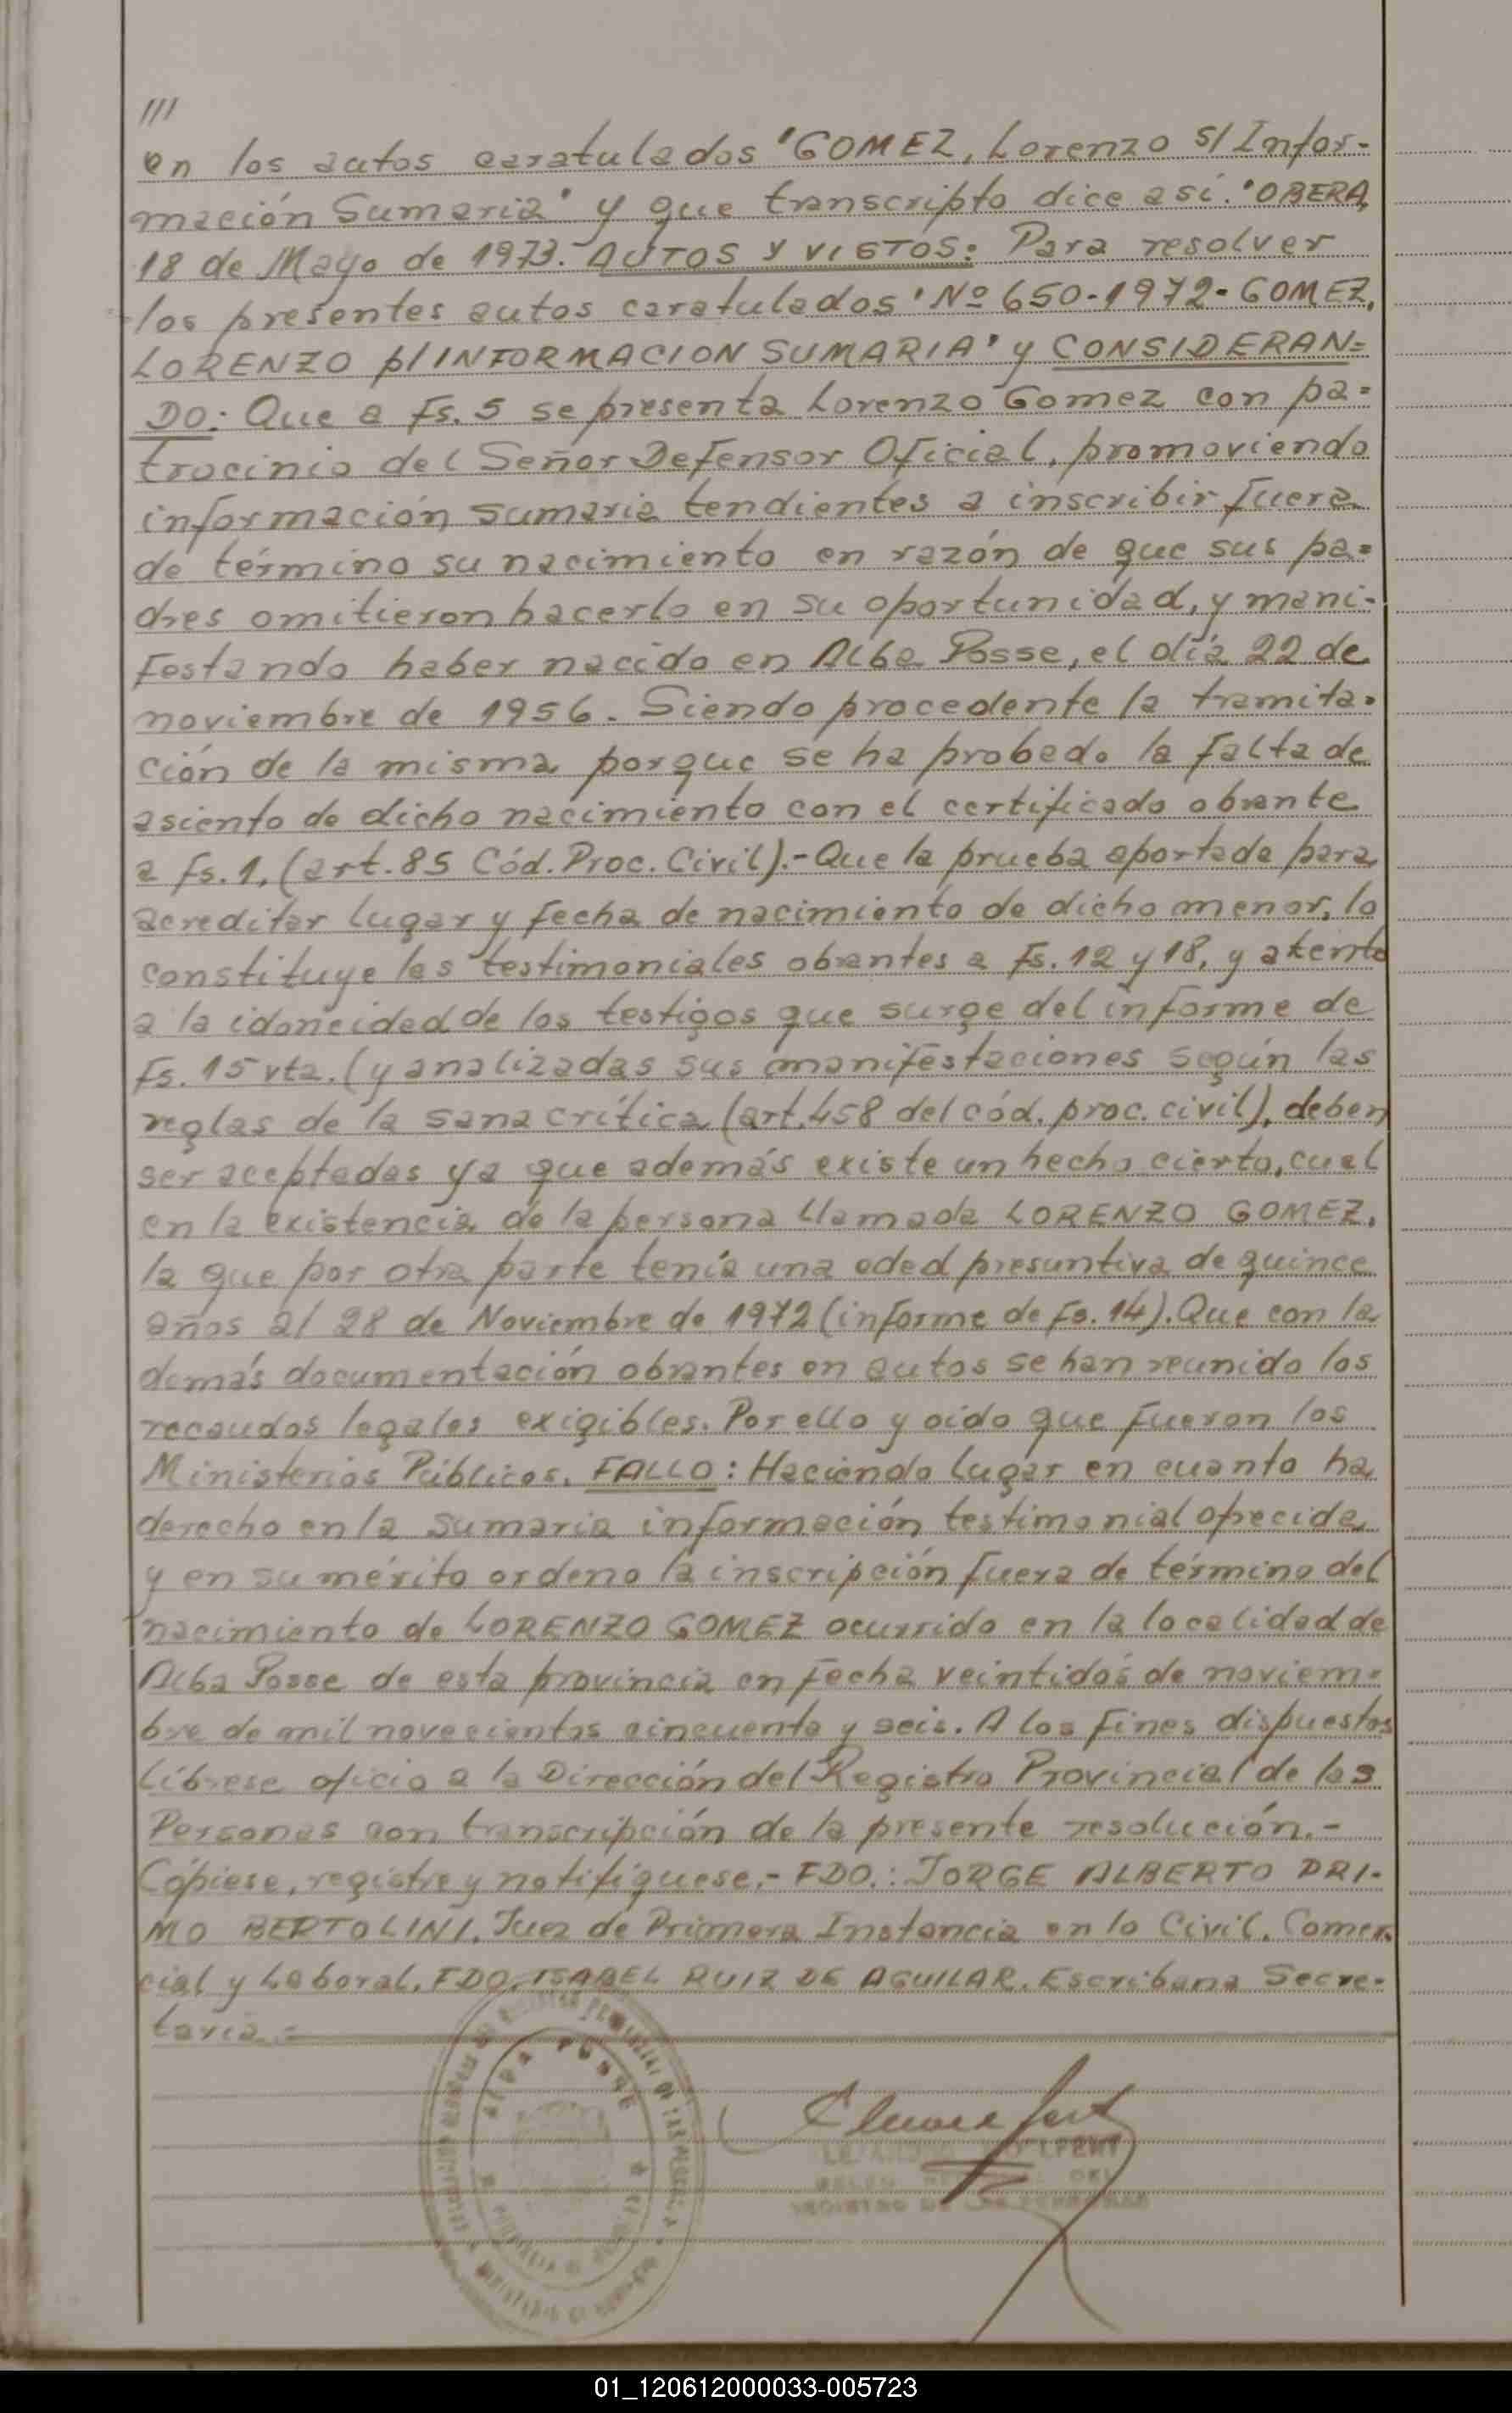 ///
en los autos caratulados "GOMEZ, Lorenzo s/Infor-
mación Sumaria" y que transcripto dice así. "OBERA,
18 de Mayo de 1973. AUTOS Y VISTOS: Para resolver
los presentes autos caratulados "Nº 650-1972-GOMEZ,
LORENZO p/INFORMACION SUMARIA" y CONSIDERAN=
DO: Que a Fs. 5 se presenta Lorenzo Gomez con pa=
trocinio del Señor Defensor Oficial, promoviendo
información sumaria tendientes a inscribir fuera
de término su nacimiento en razón de que sus pa=
dres omitieron hacerlo en su oportunidad, y mani-
festando haber nacido en Alba Posse, el día 22 de
noviembre de 1956. Siendo procedente la tramita-
ción de la misma porque se ha probado la falta de
asiento de dicho nacimiento con el certificado obrante
a fs. 1, (art. 85 Cód. Proc. Civil).- Que la prueba aportada para
acreditar lugar y fecha de nacimiento de dicho menor, lo
constituye las testimoniales obrantes a Fs. 12 y 18, y atento
a la idoneidad de los testigos que surge del informe de
Fs. 15 vta. (y analizadas sus manifestaciones según las
reglas de la sana crítica (art. 458 del cód. proc. civil), deben
ser aceptadas ya que además existe un hecho cierto, cual
en la existencia de la persona llamada LORENZO GOMEZ,
la que por otra parte tenía una edad presuntiva de quince
años al 28 de Noviembre de 1972 (informe de fs. 14). Que con la
demás documentación obrantes en autos se han reunido los
recaudos legales exigibles. Por ello y oído que fueron los
Ministerios Públicos, FALLO: Haciendo lugar en cuanto ha
derecho en la sumaria información testimonial ofrecida
y en su mérito ordeno la inscripción fuera de término del
nacimiento de LORENZO GOMEZ ocurrido en la localidad de
Alba Posse de esta provincia en fecha veintidós de noviem-
bre de mil novecientos cincuenta y seis. A los fines dispuestos
Líbrese oficio a la Dirección del Registro Provincial de las
Personas con transcripción de la presente resolución.-
Cópiese, registre y notifíquese.- FDO.: JORGE ALBERTO PRI-
MO BERTOLINI. Juez de Primera Instancia en lo Civil, Comer-
cial y Laboral. FDO. ISABEL RUIZ DE AGUILAR. Escribana Secre-
taria.-
ALBA POSSE
REGISTRO DE LAS PERSONAS
01_120612000033-005723